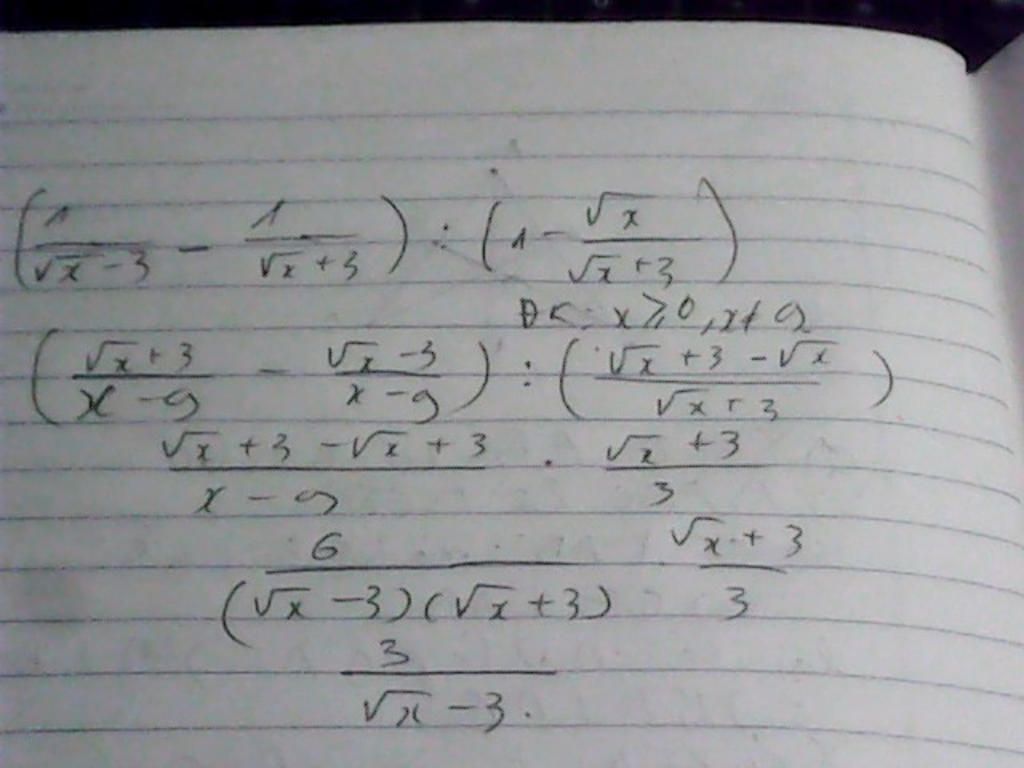 (1/(√x - 3) - 1/(√x + 3)) : (1 - √x/(√x + 3))
ĐK: x ≥ 0, x ≠ 9
((√x + 3)/(x - 9) - (√x - 3)/(x - 9)) : ((√x + 3 - √x)/(√x + 3))
(√x + 3 - √x + 3)/(x - 9) . (√x + 3)/3
6/((√x - 3)(√x + 3)) (√x + 3)/3
3/(√x - 3).